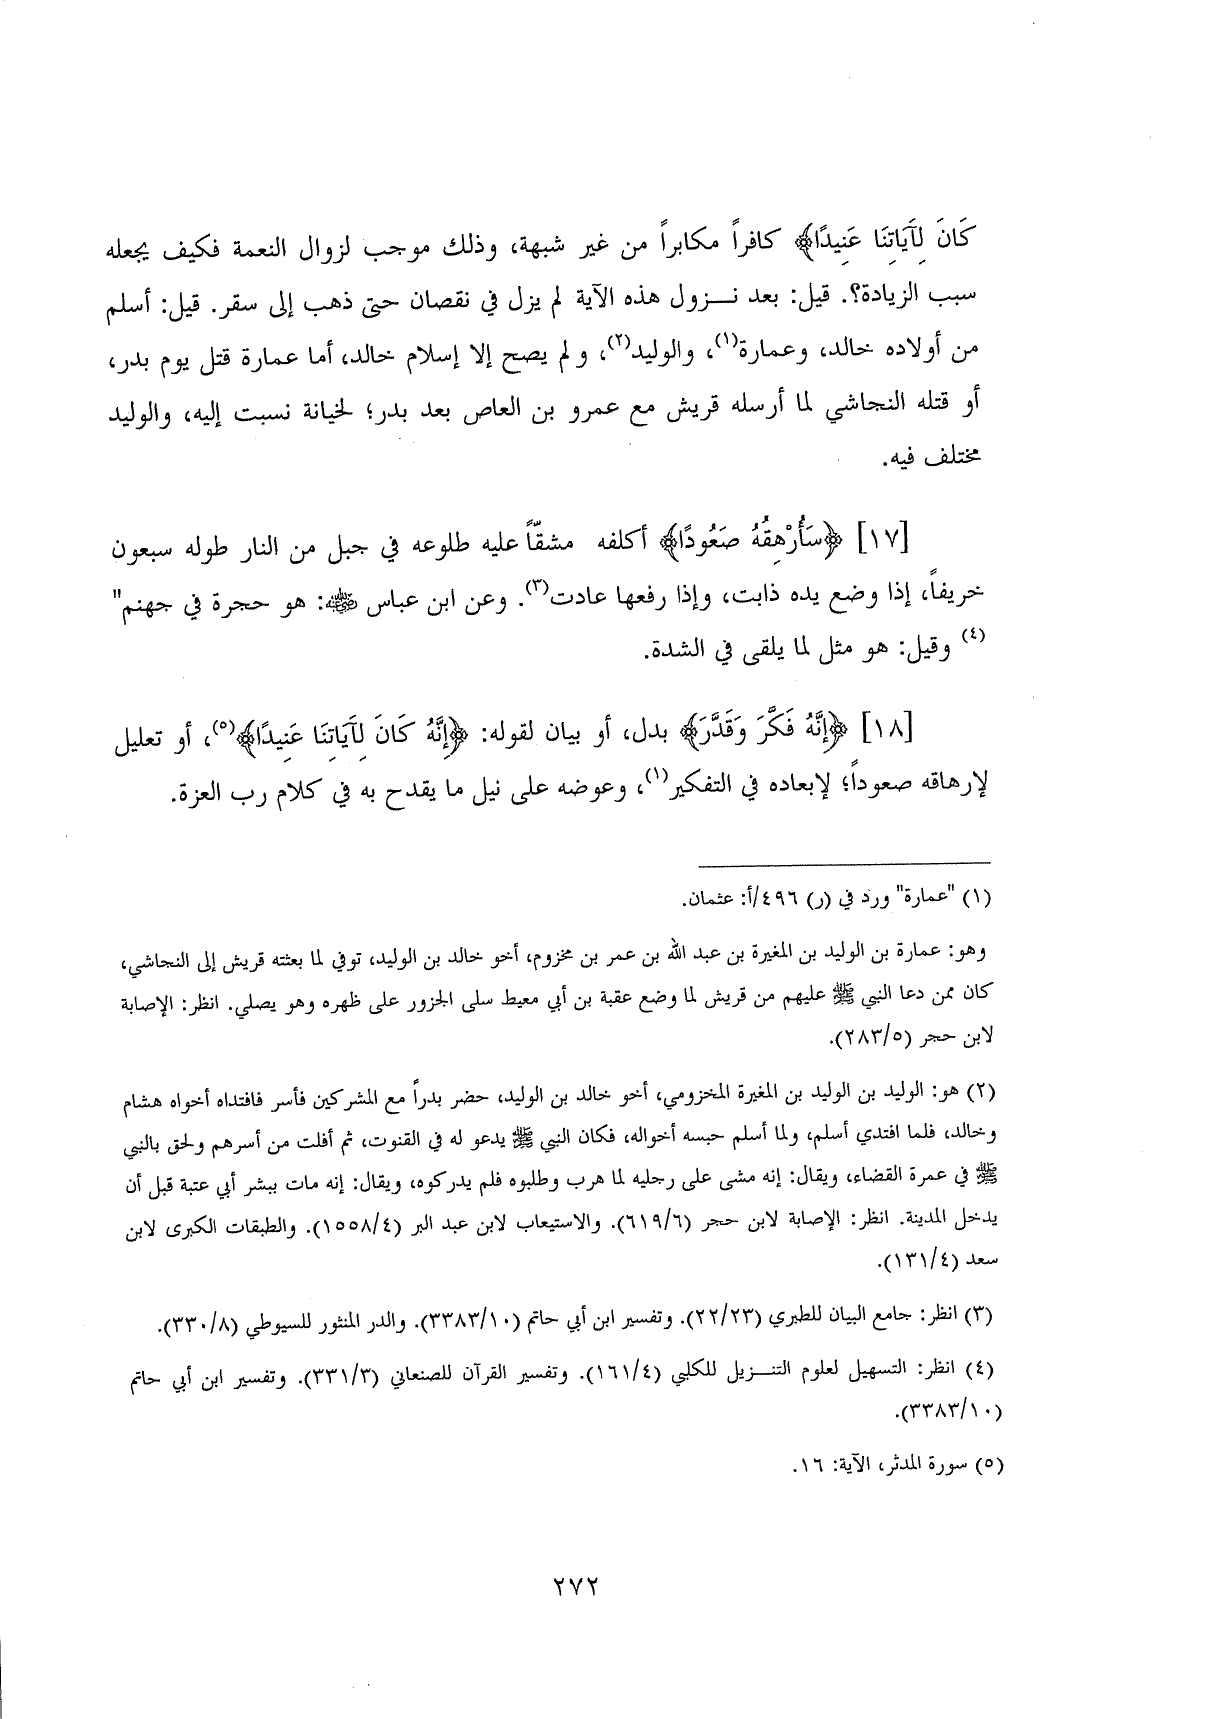 كَانَ لِآَيَاتِنَا عَنِيدًا﴾ كافراً مكابراً من غير شبهة، وذلك موجب لزوال النعمة فكيف يجعله
سبب الزيادة؟. قيل: بعد نــزول هذه الآية لم يزل في نقصان حتى ذهب إلى سقر. قيل: أسلم
من أولاده خالد، وعمارة(١)، والوليد(٢)، و لم يصح إلا إسلام خالد، أما عمارة قتل يوم بدر،
أو قتله النجاشي لما أرسله قريش مع عمرو بن العاص بعد بدر؛ لخيانة نسبت إليه، والوليد
مختلف فيه.
[١٧] ﴿سَأُرْهِقُهُ صَعُودًا﴾ أكلفه مشقّاً عليه طلوعه في جبل من النار طوله سبعون
خريفاً، إذا وضع يده ذابت، وإذا رفعها عادت(٣). وعن ابن عباس ﵁: هو حجرة في جهنم"
(٤) وقيل: هو مثل لما يلقى في الشدة.
[١٨] ﴿إِنَّهُ فَكَّرَ وَقَدَّرَ﴾ بدل، أو بيان لقوله: ﴿إِنَّهُ كَانَ لِآَيَاتِنَا عَنِيدًا﴾(٥)، أو تعليل
لإرهاقه صعوداً؛ لإبعاده في التفكير(١)، وعوضه على نيل ما يقدح به في كلام رب العزة.
(١) "عمارة" ورد في (ر) ٤٩٦/أ: عثمان.
وهو: عمارة بن الوليد بن المغيرة بن عبد الله بن عمر بن مخزوم، أخو خالد بن الوليد، توفي لما بعثته قريش إلى النجاشي،
كان ممن دعا النبي ﷺ عليهم من قريش لما وضع عقبة بن أبي معيط سلى الجزور على ظهره وهو يصلي. انظر: الإصابة
لابن حجر (٢٨٣/٥).
(٢) هو: الوليد بن الوليد بن المغيرة المخزومي، أخو خالد بن الوليد، حضر بدراً مع المشركين فأسر فافتداه أخواه هشام
وخالد، فلما افتدي أسلم، ولما أسلم حبسه أخواله، فكان النبي ﷺ يدعو له في القنوت، ثم أفلت من أسرهم ولحق بالنبي
ﷺ في عمرة القضاء، ويقال: إنه مشى على رجليه لما هرب وطلبوه فلم يدركوه، ويقال: إنه مات ببئر أبي عتبة قبل أن
يدخل المدينة. انظر: الإصابة لابن حجر (٦١٩/٦). والاستيعاب لابن عبد البر (١٥٥٨/٤). والطبقات الكبرى لابن
سعد (١٣١/٤).
(٣) انظر: جامع البيان للطبري (٢٢/٢٣). وتفسير ابن أبي حاتم (٣٣٨٣/١٠). والدر المنثور للسيوطي (٣٣٠/٨).
(٤) انظر: التسهيل لعلوم التنــزيل للكلبي (١٦١/٤). وتفسير القرآن للصنعاني (٣٣١/٣). وتفسير ابن أبي حاتم
(٣٣٨٣/١٠).
(٥) سورة المدثر، الآية: ١٦.
٢٧٢